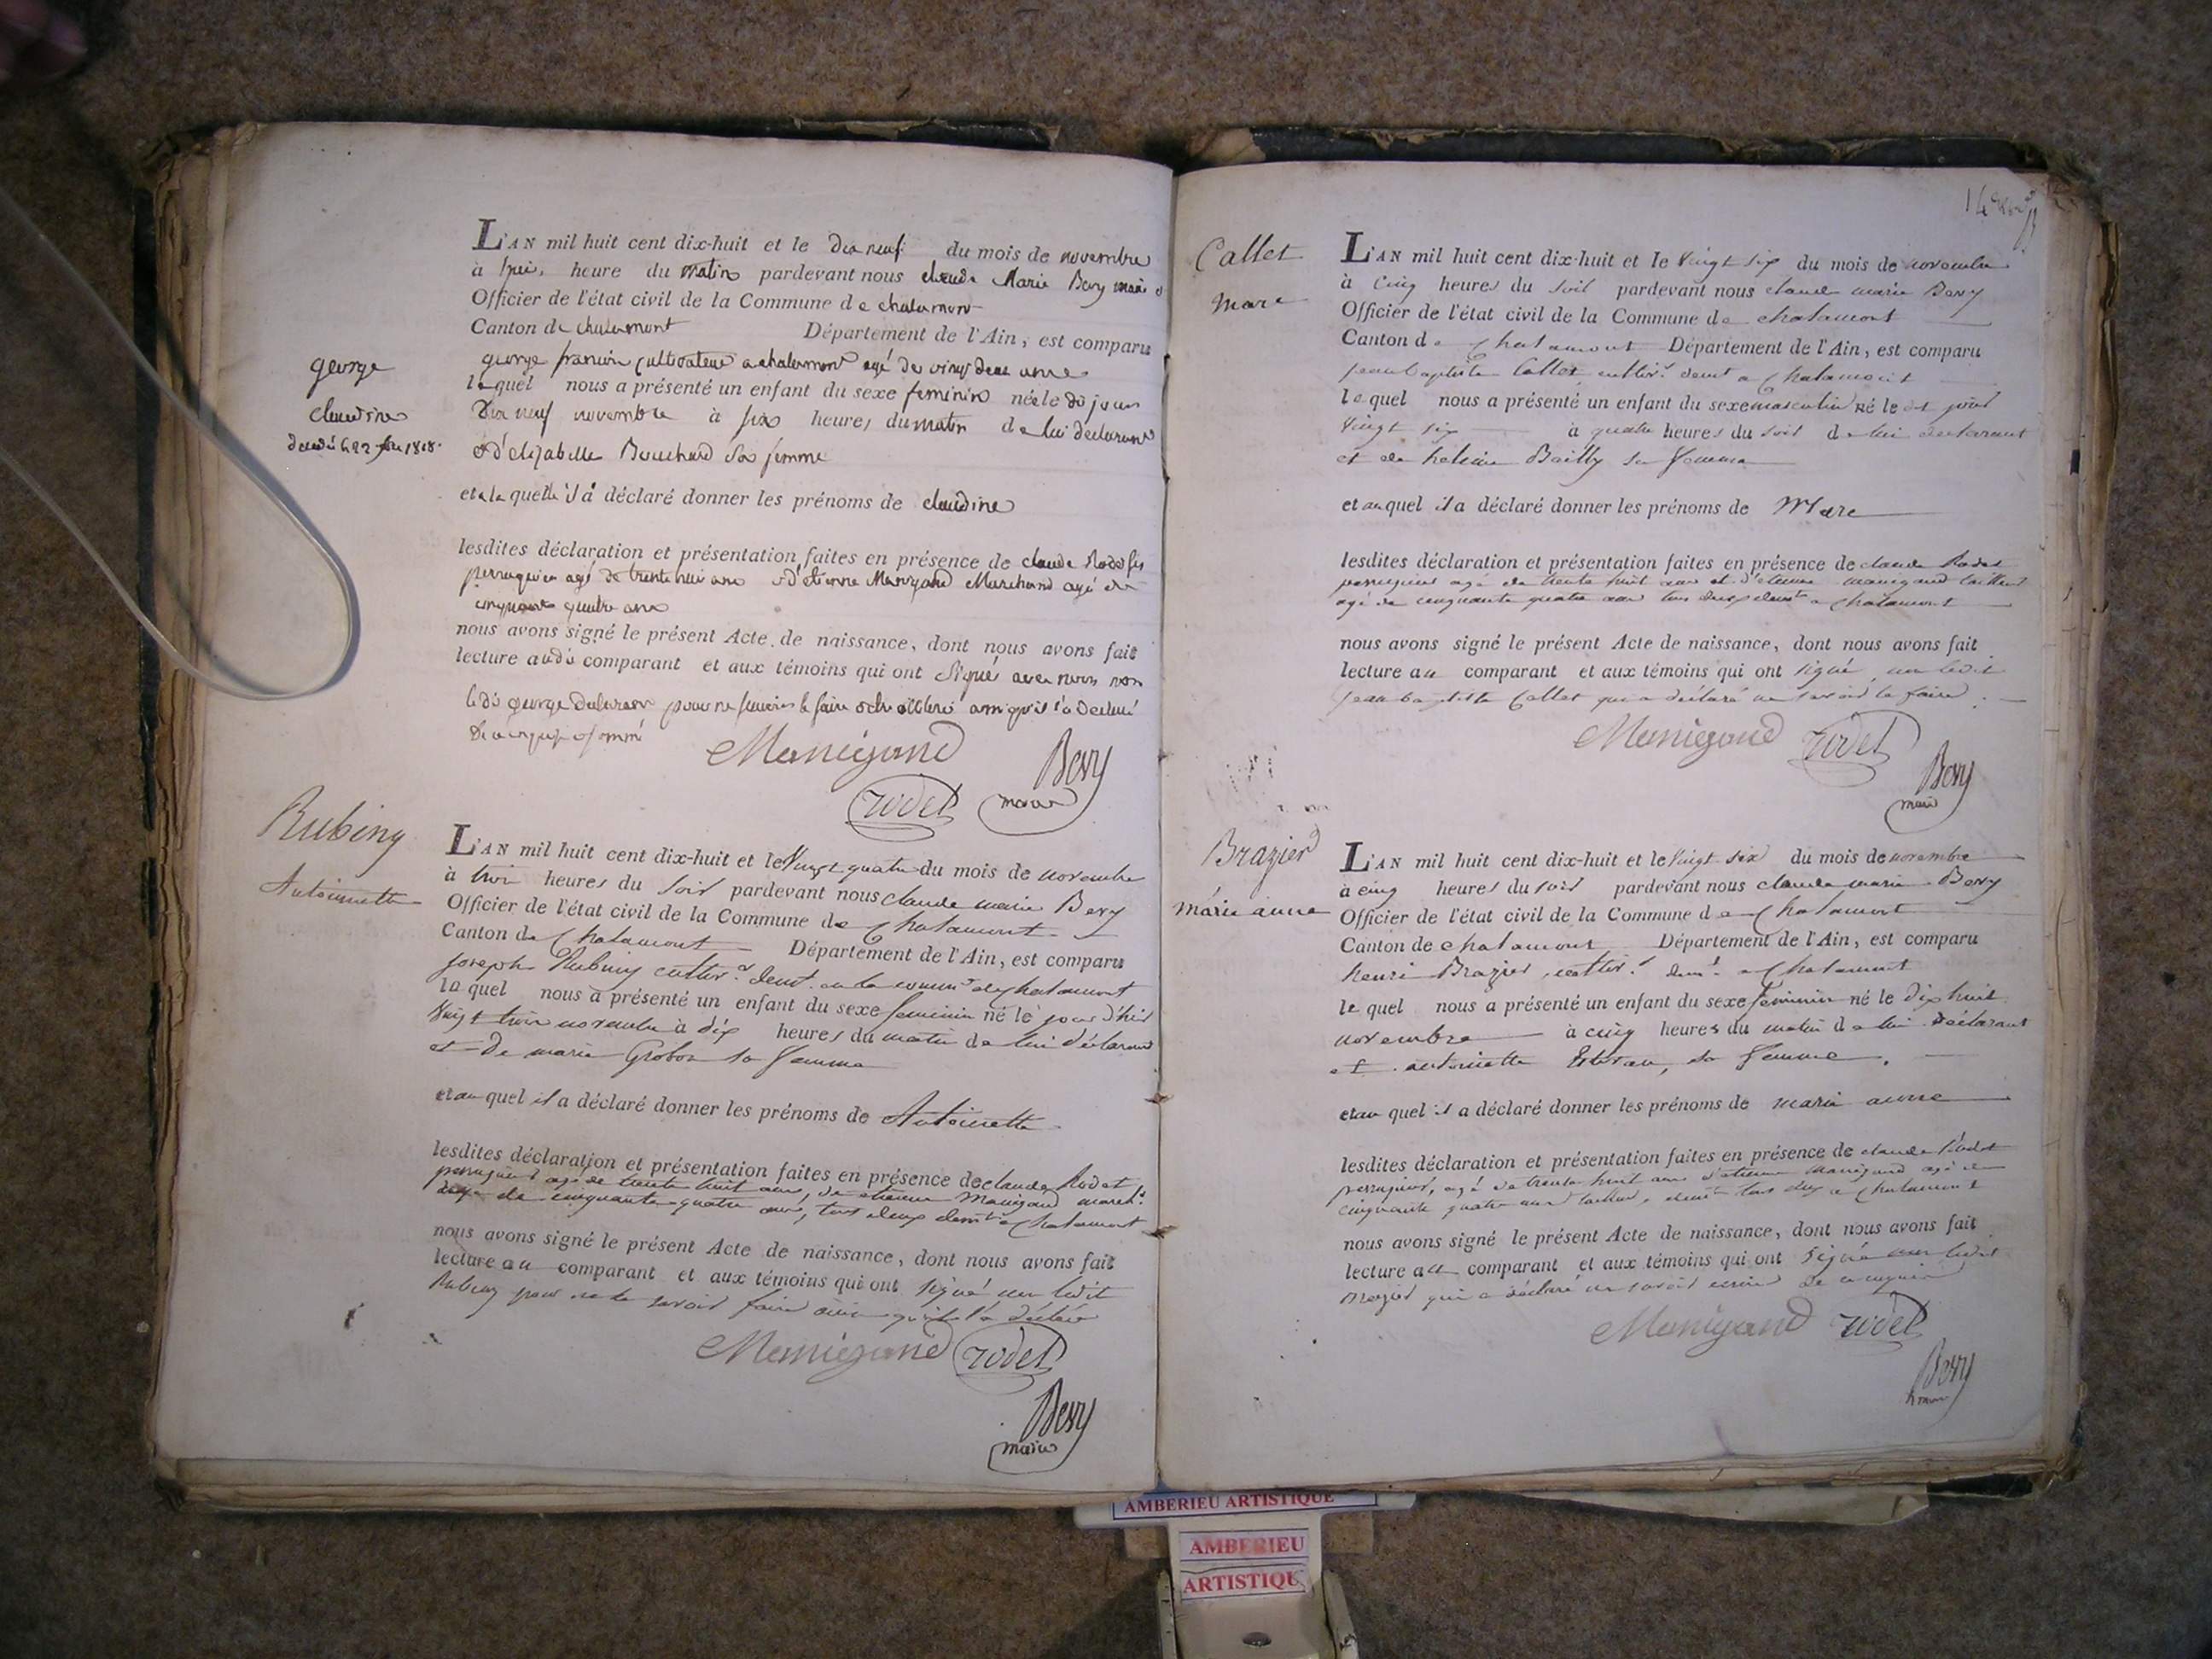 george
claudine
L'AN mil huit cent dix-huit et le dix neuf du mois de novembre
à huit heure du matin pardevant nous claude Marie Bevy maire
Officier de l'état civil de la Commune de chalamont
Canton de chalamont Département de l'Ain, est comparu
george cultivateur a chalamont agé de vingt deux ans
lequel nous a présenté un enfant du sexe feminin née le jour
Dix neuf novembre à six heures du matin de lui declarant
et d'elizabette Bouchard sa femme
et a la quelle il a déclaré donner les prénoms de claudine
lesdites déclaration et présentation faites en présence de claude Rodet
perruquier agé de trente huit ans et d'étienne Manigand Marchand agé de
cinquante quatre ans
nous avons signé le présent Acte de naissance, dont nous avons fait
lecture audit comparant et aux témoins qui ont signés avec nous non
ledit george declarant pour ne le faire ainsi qu'il l'a declaré
De ce enquis
Manigand
Bevy
rodet
maire
Rubiny
Antoinette
L'AN mil huit cent dix-huit et le Vingt quatre du mois de novembre
à trois heures du soir pardevant nous claude marie Bevy
Officier de l'état civil de la Commune de Chalamont
Canton de Chalamont Département de l'Ain, est comparu
joseph Rubiny cultivr demt en la commne de chalamont
le quel nous a présenté un enfant du sexe feminin né le jour d'hier
Vingt trois novembre à dix heures du matin de lui déclarant
et de marie Grobon sa femme
et au quel il a déclaré donner les prénoms de Antoinette
lesdites déclaration et présentation faites en présence de claude Rodet
perruquier agé de trente huit ans, de etienne Manigand march.d
agé de cinquante quatre ans, tous deux demt a Chalamont
nous avons signé le présent Acte de naissance, dont nous avons fait
lecture au comparant et aux témoins qui ont signé non ledit
Rubiny pour ne le savoir faire ainsi qu'il l'a déclaré
Manigand rodet
Bevy
maire
Callet
marc
L'AN mil huit cent dix-huit et le Vingt six du mois de novembre
à Cinq heures du soir pardevant nous claude marie Bevy
Officier de l'état civil de la Commune de chalamont
Canton de Chalamont Département de l'Ain, est comparu
jean baptiste Callet cultivr demt a Chalamont
le quel nous a présenté un enfant du sexe masculin né le dt jour
Vingt six à quatre heures du soir de lui déclarant
et de Bailly sa femme
et au quel il a déclaré donner les prénoms de Marc
lesdites déclaration et présentation faites en présence de claude Rodet
perruquier agé de trente huit ans et d'etienne manigand tailleur
agé de cinquante quatre ans tous deux demt a Chalamont
nous avons signé le présent Acte de naissance, dont nous avons fait
lecture au comparant et aux témoins qui ont signé non ledit
jean baptiste Callet qui a déclaré ne savoir le faire
Manigand rodet
Bevy
maire
Brazier
marie anne
L'AN mil huit cent dix-huit et le Vingt six du mois de novembre
à cinq heures du soir pardevant nous claude marie Bevy
Officier de l'état civil de la Commune de Chalamont
Canton de chalamont Département de l'Ain, est comparu
henri Brazier cultivr demt a Chalamont
le quel nous a présenté un enfant du sexe feminin né le dix huit
novembre à cinq heures du matin de lui déclarant
et antoinette sa femme
et au quel il a déclaré donner les prénoms de marie anne
lesdites déclaration et présentation faites en présence de claude Rodet
perruquier, agé de trente huit ans d'etienne Manigand agé de
cinquante quatre ans tailleur, demt tous deux a Chalamont
nous avons signé le présent Acte de naissance, dont nous avons fait
lecture au comparant et aux témoins qui ont signé non ledit
Brazier qui a déclaré ne savoir ecrire de ce enquis
Manigand rodet
Bevy
maire
AMBERIEU ARTISTIQUE
AMBERIEU
ARTISTIQU